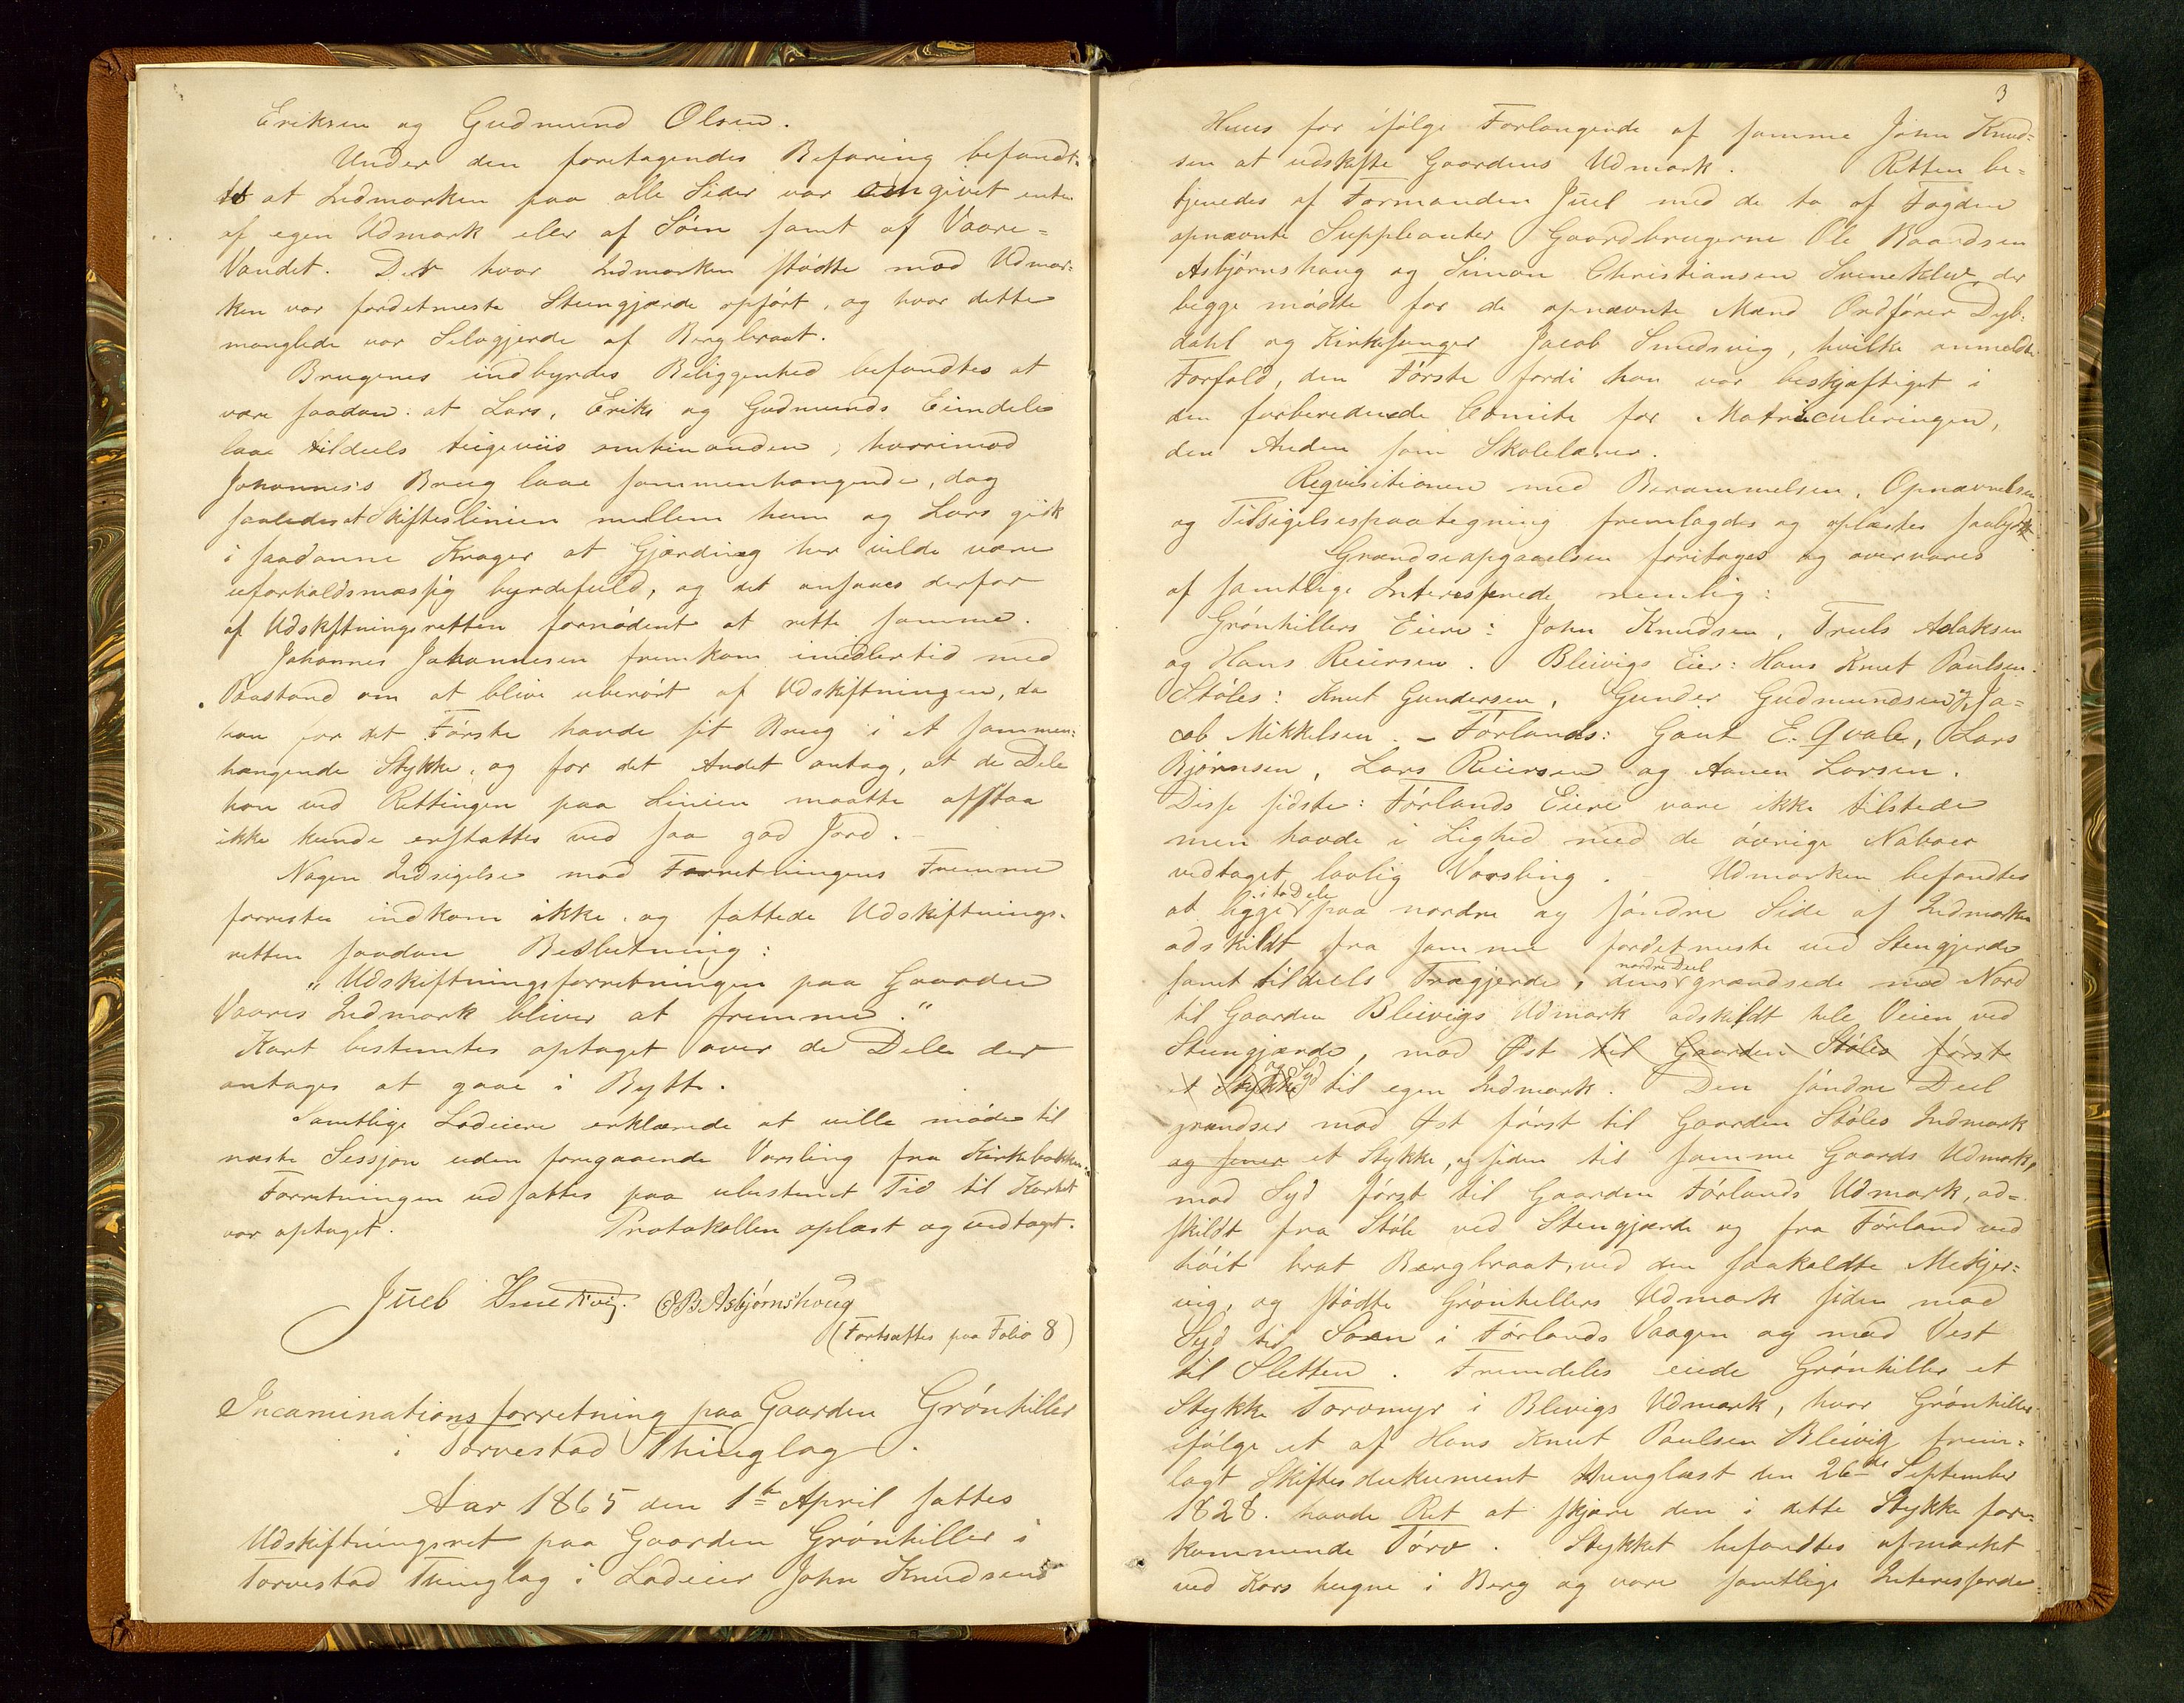 Eriksen og Gudmund Olsen.
Under den foretagendes Befaring befandt-
tes at Indmarken paa alle Sider var omgivet enten
af egen Udmark eler af Søen samt af Vaare-
Vandet. Der hvor Indmarken stødte mod Udmar-
ken var fordetmeste Steengjærde opført, og hvor dette
manglede var Selvgjerde af Bergbraat.
Brugenes indbyrdes Beliggenhed befandtes at
være saadan: at Lars, Eriks og Gudmunds Eiendele
laae tildeels teigeviis omhinanden; hvorimod
Johannes's Brug laae sammenhængende, dog
saaledes at Skifteslinien mellem ham og Lars gik
i saadanne Kroger at Gjærding her vilde være
uforholdsmæssig byrdefuld, og det ansaaes derfor
af Udskiftningsretten fornødent at rette samme.
Johannes Johannesen fremkom imidlertid med
Paastand om at blive uberørt af Udskiftningen, da
han for det Første havde sit Brug i et sammen-
hængende Stykke, og for det Andet antog, at de Dele
han ved Rettingen paa Linien maatte afstaa
ikke kunde erstattes ved saa god Jord. -
Nogen Indsigelse mod Forretningens Fremme
forresten indkom ikke, og fattede Udskiftnings-
retten saadan Beslutning:
"Udskiftningsforretningen paa Gaarden
Vaares Indmark bliver at fremme."
Kart bestemtes optaget over de Dele der
antages at gaae i Bytte.
Samtlige Lodeiere erklærede at ville møde til
næste Session uden foregaaende Varsling fra Kirkebakken.
Forretningen udsattes paa ubestemt Tid til Kartet
var optaget. Protokollen oplæst og vedtaget.
Juel Smedsvig. O B Asbjørnshoug
(Fortsættes paa Folio 8)
Incaminationsforretning paa Gaarden Grønhiller
i Torvestad Thinglag.
Aar 1865 den 1te April sattes
Udskiftningsret paa Gaarden Grønhiller i
Torvestad Thinglag i Lodeier John Knudsens
3
Huus for ifølge Forlangende af samme John Knud-
sen at udskifte Gaardens Udmark. Retten be-
tjenedes af Formanden Juel med de to af Fogden
opnævnte Suppleanter Gaardbrugerne Ole Baardsen
Asbjørnshaug og Simon Christiansen Svineklev der
begge mødte for de opnævnte Mænd Ordfører Dyb-
dahl og Kirkesanger Jacob Smedsvig, hvilke anmeldte
Forfald, den Første fordi han var beskjæftiget i
den forberedende Comite for Matriculeringen,
den Anden som Skolelærer.
Reqvisitionen med Berammelsen, Opnævnelsen
og Tilsigelsespaategning fremlagdes og oplæstes saalyd
Grændseopgaaelsen foretages og overværes
af samtlige Interesserede nemlig:
Grønhillers Eiere: John Knudsen, Truls Aslaksen
og Hans Reiersen. Bleivigs Eier: Hans Knut Paulsen.
Støles: Knut Gundersen, Gunder Gudmundsen og Ja-
cob Mikkelsen. - Førlands: Gaut E. Qvale, Lars
Bjørnsen, Lars Reiersen og Aanen Larsen.
Disse sidste: Førlands Eiere vare ikke tilstede
men havde i Lighed med de øvrige Naboer
vedtaget lovlig Varsling. - Udmarken befandtes
i to Dele
at ligge paa nordre og søndre Side af Indmarken
adskildt fra samme fordetmeste ved Stengjerde
nordre Deel
samt tildeels Trægjerde, dens grændsede mod Nord
til Gaarden Bleivigs Udmark adskildt hele Veien ved
Steengjærde, mod Øst til Gaarden Støles først
og Syd
et Stykke til egen Indmark. Den søndre Deel
grændser mod Øst først til Gaarden Støles Indmark
og senere et Stykke, og siden til samme Gaards Udmark,
mod Syd først til Gaarden Førlands Udmark, ad-
skildt fra Støle ved Steengjærde og fra Førland ved
høit brat Bergbraat, ved den saakaldte Mekjer-
vig, og stødte Grønhillers Udmark siden mod
Syd til Søen i Førlands Vaagen og mod Vest
til Sletten. Fremdeles eiede Grønhiller et
Stykke Torvmyr i Blivigs Udmark, hvor Grønhiller
ifølge et af Hans Knut Paulsen Bleivig frem-
lagt Skiftesdokument thinglæst den 26de September
1828. havde Ret at skjære den i dette Stykke fore-
kommende Tørv. Stykket befandtes afmærket
ved Kors hugne i Berg og vare samtlige Interesserede